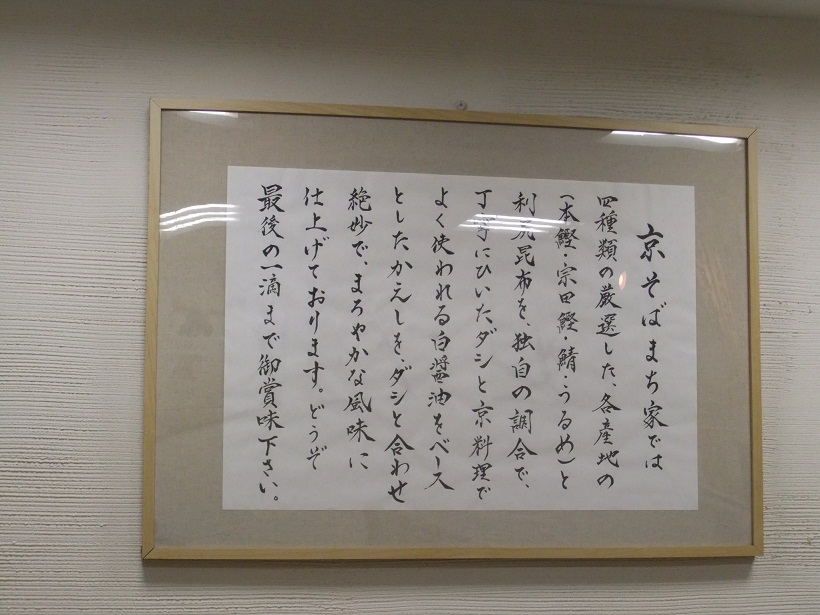 京そばまち家では
四種類の厳選した、各産地の
(本鰹・宗田鰹・鯖・うるめ)と
利尻昆布を、独自の調合で、
丁寧にひいたダシと京料理で
よく使われる白醬油をベース
としたかえしを、ダシと合わせ
絶妙で、まろやかな風味に
仕上げております。どうぞ
最後の一滴まで御賞味下さい。